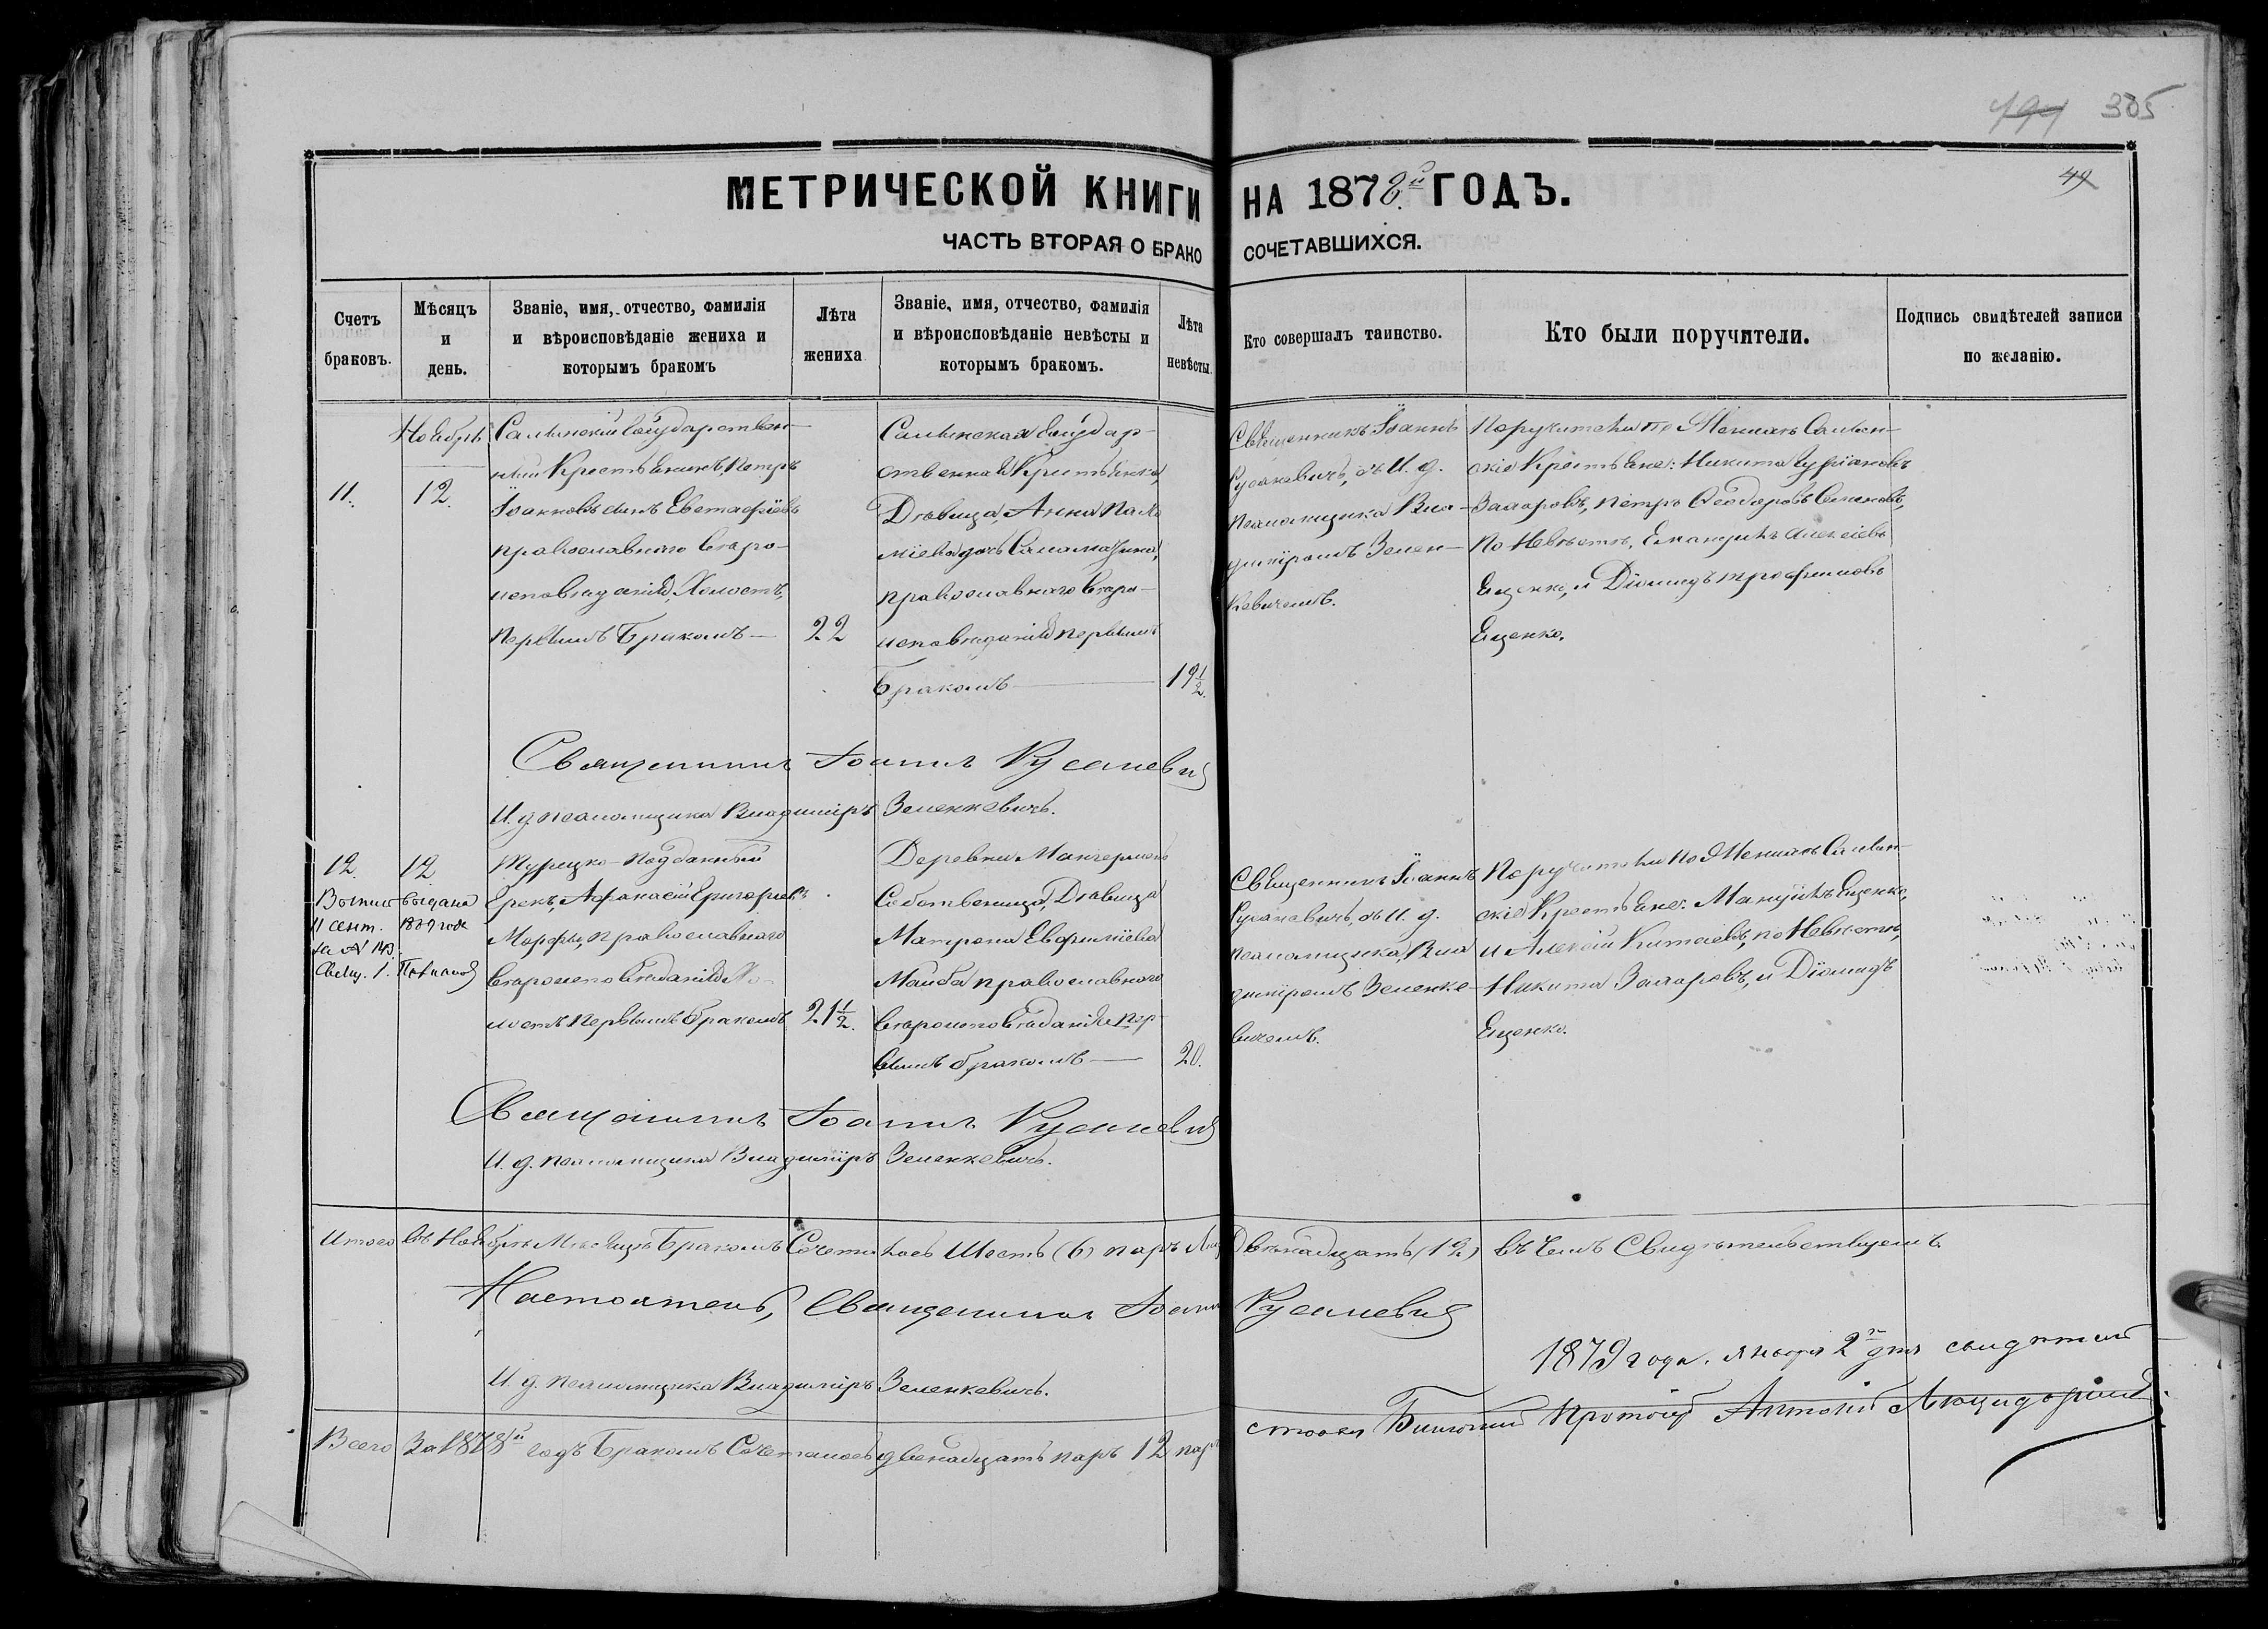 305
49
МЕТРИЧЕСКОЙ КНИГИ НА 1878й ГОДЪ.
ЧАСТЬ ВТОРАЯ О БРАКОСОЧЕТАВШИХСЯ.
Счетъ браковъ.
Мѣсяцъ и день.
Званіе, имя, отчество, фамилія и вѣроисповѣданіе жениха и которымъ бракомъ
Лѣта жениха
Званіе, имя, отчество, фамилія и вѣроисповѣданіе невѣсты и которымъ бракомъ.
Лѣта невѣсты.
Кто совершалъ таинство.
Кто были поручители.
Подпись свидѣтелей записи по желанію.
11.
Ноябрь
12.
Салынскій Государствен-
ный Крестьянинъ, Петръ
Іоанновъ сынъ Евстафіевъ
православнаго Въро-
исповѣданія, Холостъ,
первымъ Бракомъ
22
Салынская Государ-
ственная Крестьянка,
Дѣвица, Анна
дочь
православнаго Въро-
исповѣданія первымъ
бракомъ
19 1/2.
Священникъ Іоаннъ
Русаневичъ, съ И. д.
псаломщика Вла-
диміромъ Зелен-
кевичемъ.
Поручители по Женихѣ Салын-
скіе Крестьяне: Никита
Захаровъ, Петръ Ѳеодоровъ Семеновъ,
По Невѣстѣ, Емануилъ Алексіевъ
Ещенко, и Діомидъ Трофимовъ
Ещенко.
Священникъ Іоаннъ Русаневичъ
И. д. псаломщика Владиміръ Зеленкевичъ.
12.
12
Выпись выдана
11 сент. 1889 года
за № 143.
Свящ. І.
Турецко-подданный
Грекъ, Афанасій Григоріевъ
православнаго
Вѣроисповѣданія Хо-
лостъ первымъ бракомъ
21 1/2.
Деревни
Собственница, Дѣвица
Матрона
Майба православнаго
Вѣроисповѣданія пер-
вымъ бракомъ
20.
Священникъ Іоаннъ
Русаневичъ, съ И. д.
псаломщика, Вла
диміромъ Зеленке-
вичемъ.
Поручители по Женихѣ Салын-
скіе Крестьяне: Мануилъ Ещенко,
и Алексій Китаевъ, по Невѣстѣ,
Никита Захаровъ, и Діомидъ
Ещенко.
Священникъ Іоаннъ Русаневичъ
И. д. псаломщика Владиміръ Зеленкевичъ.
Итого въ Ноябрѣ Мѣсяцѣ Бракомъ Сочеталось Шесть (6) паръ Лицъ Двѣнадцать (12) въ чемъ Свидѣтельствуемъ.
Настоятель, Священникъ Іоаннъ Русаневичъ
И. д. псаломщика Владиміръ Зеленкевичъ.
Всего За 1878й годъ Бракомъ Сочеталось двенадцать паръ 12 паръ
1879 года. января 2го дня
Антоній